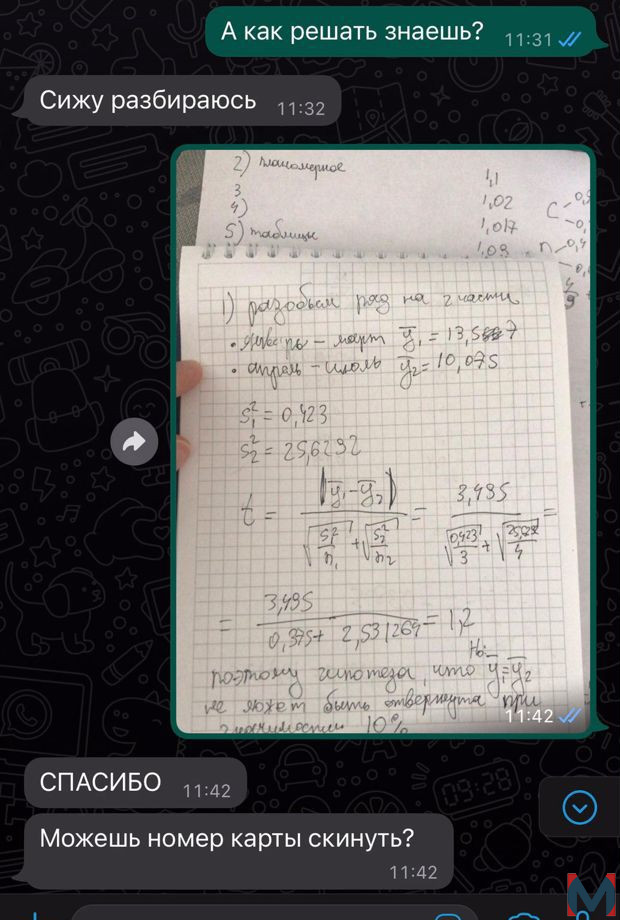 А как решать знаешь? 11:31
Сижу разбираюсь 11:32
2) планомерное
3
4)
5) таблицы
1,1
1,02
1,017
1,09
1) разобьем ряд на 2 части
• январь – март y̅₁ = 13,57
• апрель – июль y̅₂ = 10,075
S₁² = 0,423
S₂² = 25,6292
t = |y̅₁ - y̅₂| / (√(S₁²/n₁) + √(S₂²/n₂)) = 3,495 / (√(0,423/3) + √(25,6292/4)) =
= 3,495 / (0,375 + 2,531264) = 1,2
поэтому гипотеза, что H₀: y̅₁ = y̅₂
не может быть отвергнута при
значимости 10%
11:42
СПАСИБО 11:42
Можешь номер карты скинуть?
11:42
09:28
M